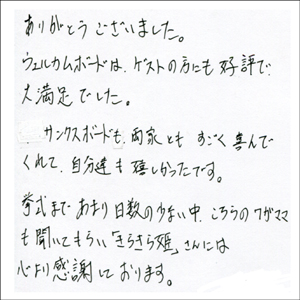 ありがとうございました。
ウェルカムボードは、ゲストの方にも好評で
大満足でした。
サンクスボードも、両家とも すごく喜んで
くれて、自分達も嬉しかったです。
挙式まで あまり日数の少ない中、こちらのワガママ
も聞いてもらい「きらきら姫」さんには
心より感謝しております。